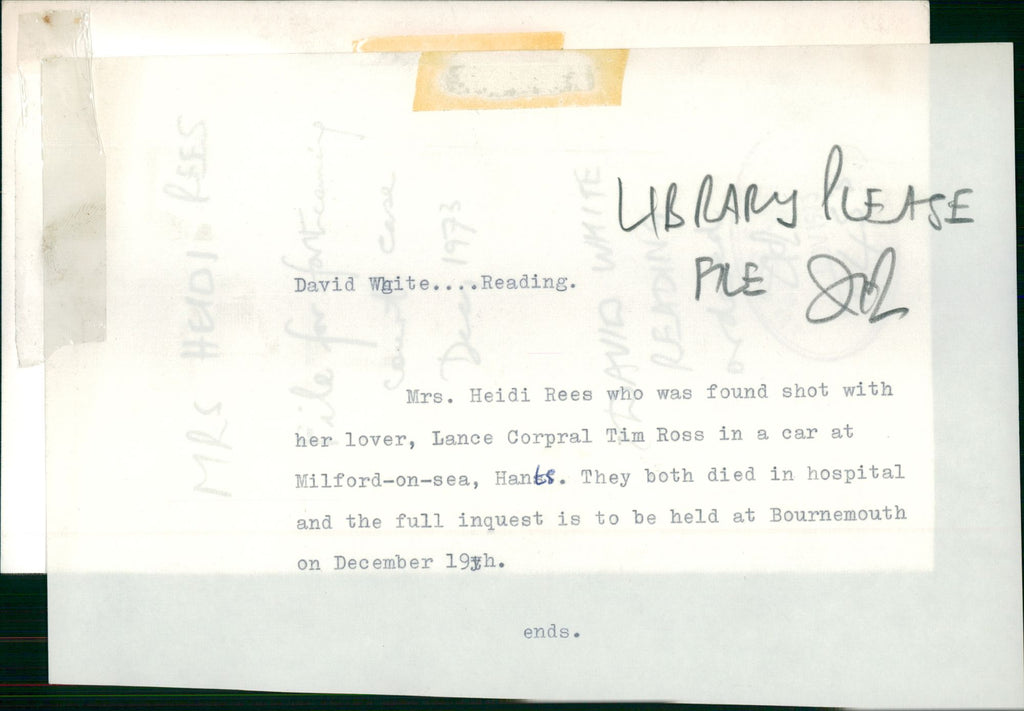 LIBRARY PLEASE
FILE
David White....Reading.
Mrs. Heidi Rees who was found shot with
her lover, Lance Corpral Tim Ross in a car at
Milford-on-sea, Hants. They both died in hospital
and the full inquest is to be held at Bournemouth
on December 19th.
ends.
MRS HEIDI REES
file for forthcoming
court case
Dec 1973
DAVID WHITE
READING